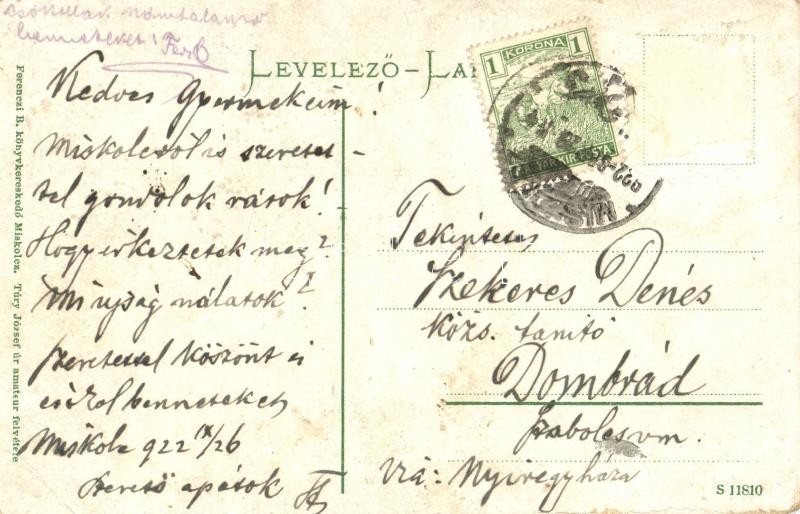 Csókollak számtalanszor
benneteket! Ferkó
LEVELEZŐ-LA
1 KORONA 1
MAGYAR KIR. POSTA
Kedves Gyermekeim!
Miskolcról is szeretet-
tel gondolok rátok!
Hogy érkeztetek meg?
Mi ujság nálatok?
Szeretettel köszönt és
csókol benneteket
Miskolc 922 IX/26
Szerető apátok
Tekintetes
Szekeres Dénes
közs. tanító
Dombrád
Szabolcs vm.
Via: Nyiregyháza
S 11810
Ferenczi B. könyvkereskedő Miskolcz. Túry József úr amateur felvétele